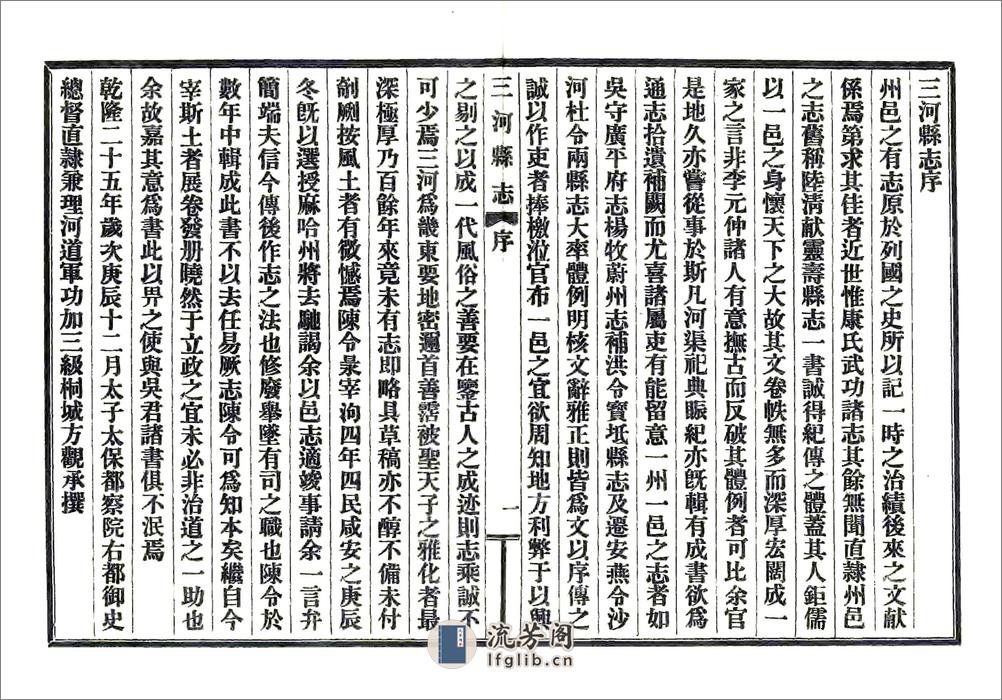 三河縣志序
州邑之有志原於列國之史所以記一時之治績後來之文獻
係焉第求其佳者近世惟康氏武功諸志其餘無聞直隸州邑
之志舊稱陸清獻靈壽縣志一書誠得紀傳之體蓋其人鉅儒
以一邑之身懷天下之大故其文卷帙無多而深厚宏闊成一
家之言非李元仲諸人有意撫古而反破其體例者可比余官
是地久亦嘗從事於斯凡河渠祀典賑紀亦旣輯有成書欲爲
通志拾遺補闕而尤喜諸屬吏有能留意一州一邑之志者如
吳守廣平府志楊牧蔚州志補洪令寶坻縣志及遷安燕令沙
河杜令兩縣志大率體例明核文辭雅正則皆爲文以序傳之
誠以作吏者捧檄涖官布一邑之宜欲周知地方利弊于以興
三河縣志 序 一
之剔之以成一代風俗之善要在鑒古人之成迹則志乘誠不
可少焉三河爲畿東要地密邇首善霑被聖天子之雅化者最
深極厚乃百餘年來竟未有志即略具草稿亦不醇不備未付
剞劂按風土者有微憾焉陳令彔宰泃四年四民咸安之庚辰
冬旣以選授麻哈州將去馳謁余以邑志適竣事請余一言弁
簡端夫信今傳後作志之法也修廢舉墜有司之職也陳令於
數年中輯成此書不以去任易厥志陳令可爲知本矣繼自今
宰斯土者展卷發册曉然于立政之宜未必非治道之一助也
余故嘉其意爲書此以畀之使與吳君諸書俱不泯焉
乾隆二十五年歲次庚辰十二月太子太保都察院右都御史
總督直隸兼理河道軍功加三級桐城方觀承撰
流芳阁
lfglib.cn